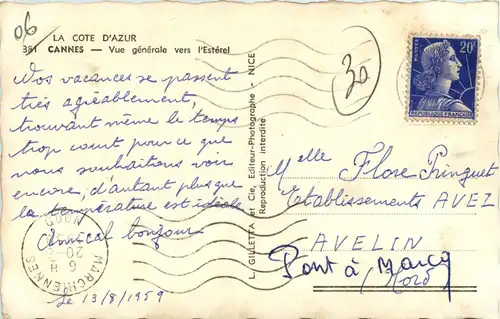 06
LA COTE D'AZUR
381 CANNES — Vue générale vers l'Estérel
Nos vacances se passent
très agréablement,
trouvant même le temps
trop court pour ce que
nous souhaitons voir
encore, d'autant plus que
la température est idéale
Amical bonjour
Le 13/8/1959
L. GILLETTA et Cie, Editeur-Photographe - NICE
Reproduction interdite
30
POSTES
20F
REPUBLIQUE FRANÇAISE
Melle Flore Pringuet
Etablissements AVEZ
AVELIN
Pont à Marcq
Nord
MARCHIENNES
NORD
20
6 H